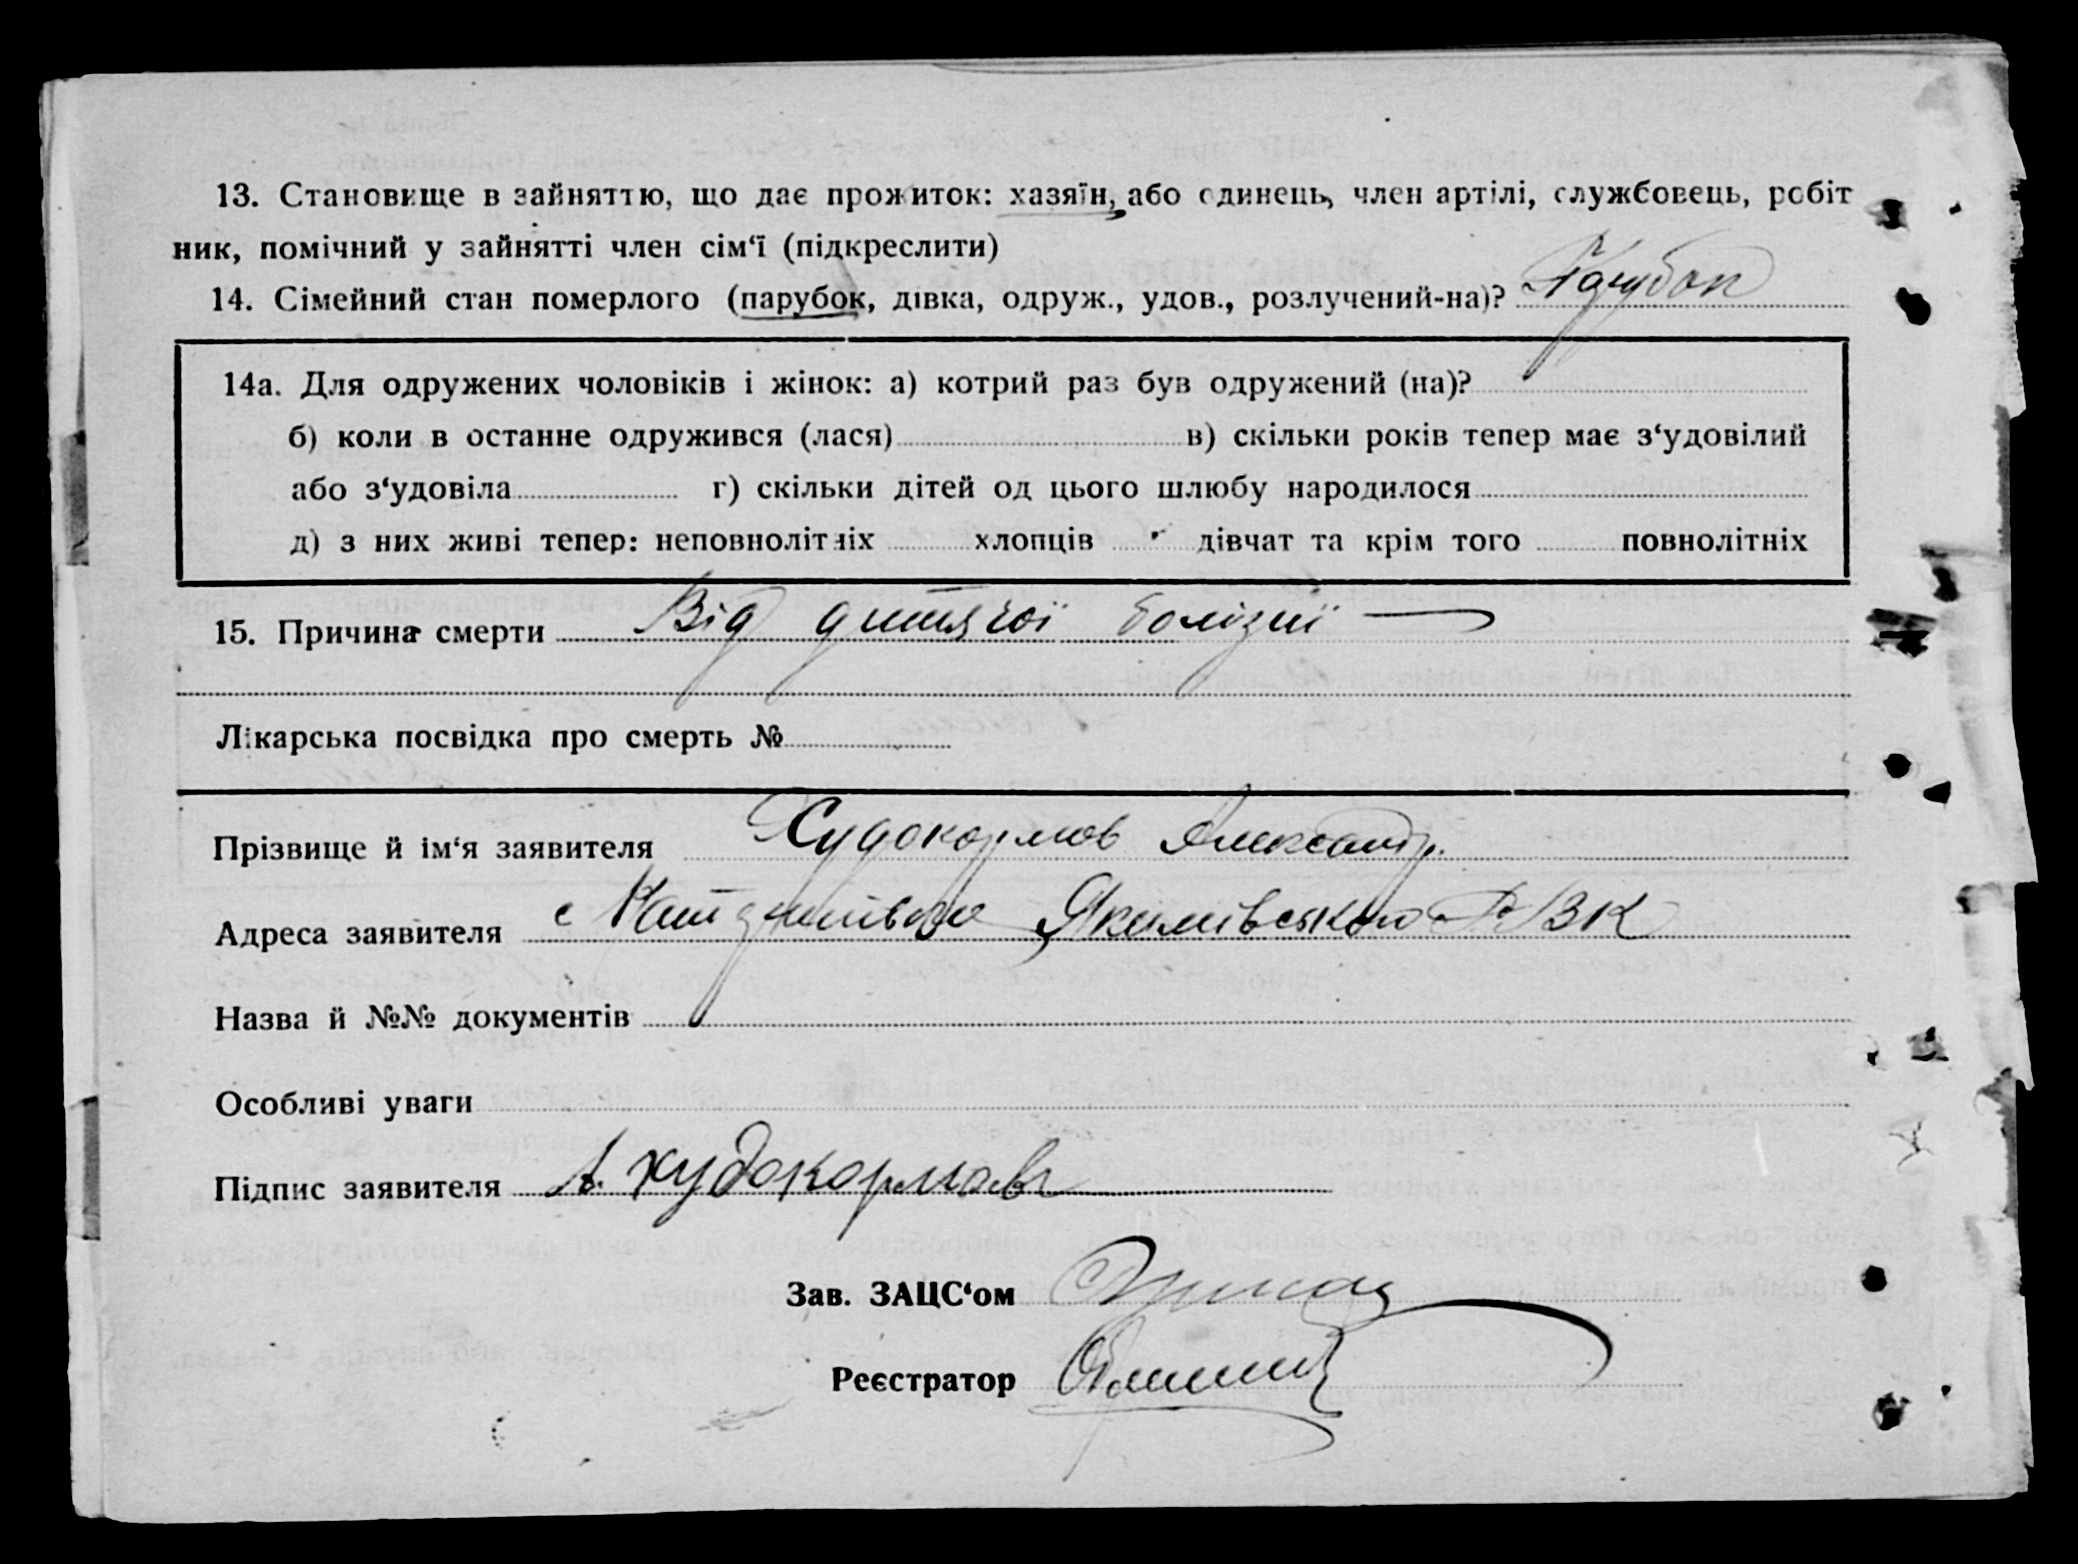 13. Становище в зайняттю, що дає прожиток: хазяїн, або одинець, член артілі, службовець, робіт
ник, помічний у зайнятті член сім‘ї (підкреслити)
14. Сімейний стан померлого (парубок, дівка, одруж., удов., розлучений-на)? Парубок
14а. Для одружених чоловіків і жінок: а) котрий раз був одружений (на)?
б) коли в останне одружився (лася) в) скільки років тепер має з‘удовілий
або з‘удовіла г) скільки дітей од цього шлюбу народилося
д) з них живі тепер: неповнолітніх хлопців дівчат та крім того повнолітніх
15. Причина смерти Від дитячої болізні
Лікарська посвідка про смерть №
Прізвище й ім‘я заявителя Худокормов Александр.
Адреса заявителя с Якимівського РВК
Назва й №№ документів
Особливі уваги
Підпис заявителя А. Худокормов
Зав. ЗАЦС‘ом
Реєстратор